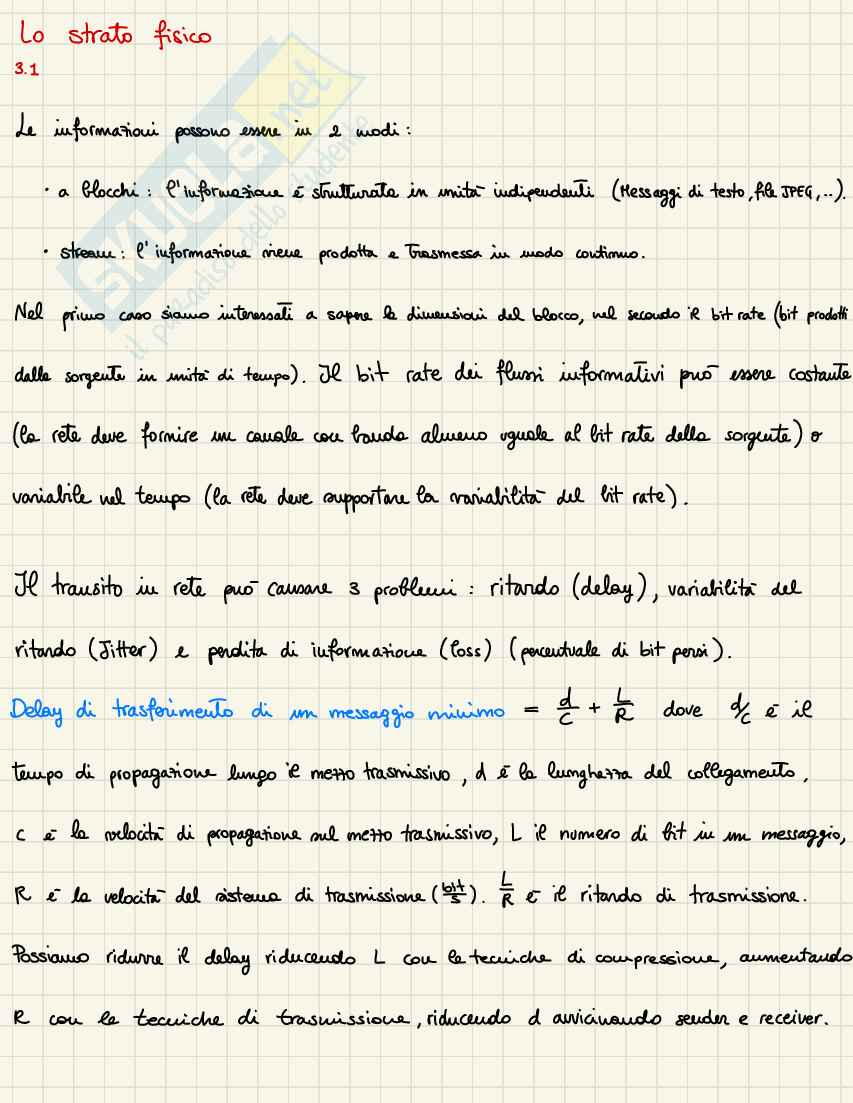 Lo strato fisico
3.1
Le informazioni possono essere in 2 modi:
• a blocchi: l'informazione è strutturata in unità indipendenti (Messaggi di testo, file JPEG,..).
• stream: l'informazione viene prodotta e Trasmessa in modo continuo.
Nel primo caso siamo interessati a sapere le dimensioni del blocco, nel secondo il bit rate (bit prodotti
dalla sorgente in unità di tempo). Il bit rate dei flussi informativi può essere costante
(la rete deve fornire un canale con banda almeno uguale al bit rate della sorgente) o
variabile nel tempo (la rete deve supportare la variabilità del bit rate).
Il transito in rete può causare 3 problemi: ritardo (delay), variabilità del
ritardo (Jitter) e perdita di informazione (loss) (percentuale di bit persi).
Delay di trasferimento di un messaggio minimo = d/c + L/R dove d/c è il
tempo di propagazione lungo il mezzo trasmissivo, d è la lunghezza del collegamento,
c è la velocità di propagazione sul mezzo trasmissivo, L il numero di bit in un messaggio,
R è la velocità del sistema di trasmissione (bit/s). L/R è il ritardo di trasmissione.
Possiamo ridurre il delay riducendo L con le tecniche di compressione, aumentando
R con le tecniche di trasmissione, riducendo d avvicinando sender e receiver.
SKUOLA.net
il paradiso dello studente